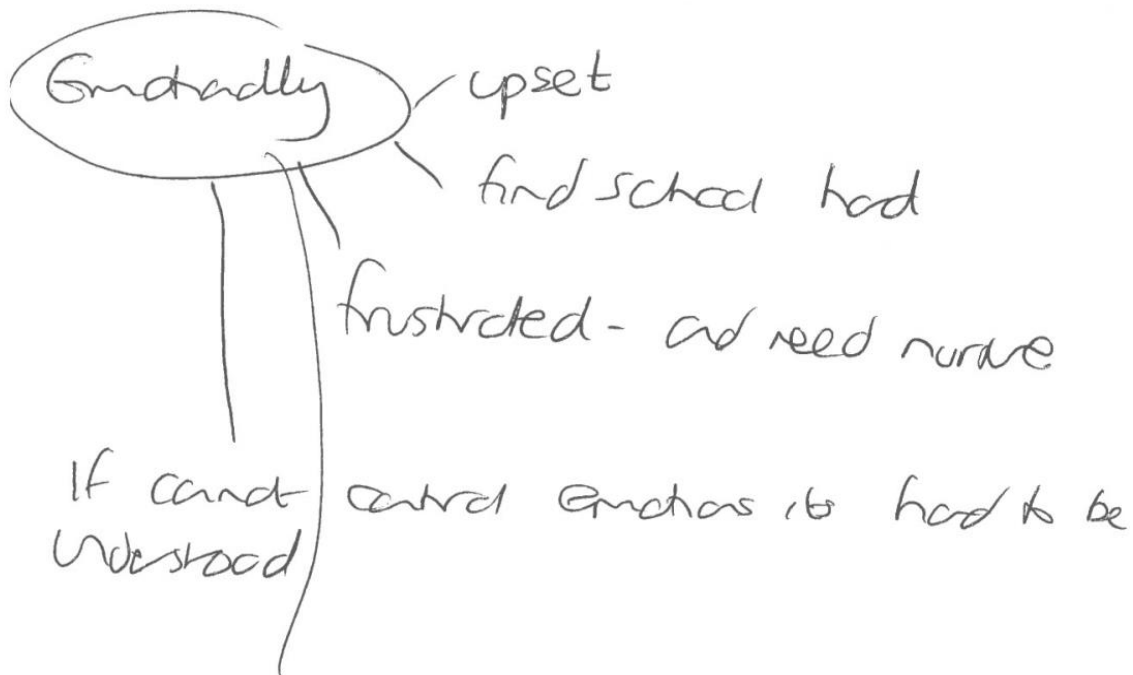 Emotionally
upset
find school hard
frustrated - and need nurture
If cannot control emotions its hard to be
understood